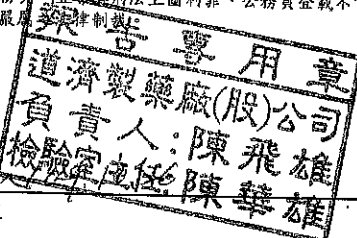 刑法上圖利罪、公務員登載不
律制裁
藥害專用章
道濟製藥廠(股)公司
負責人：陳飛雄
檢驗室主任 陳華雄